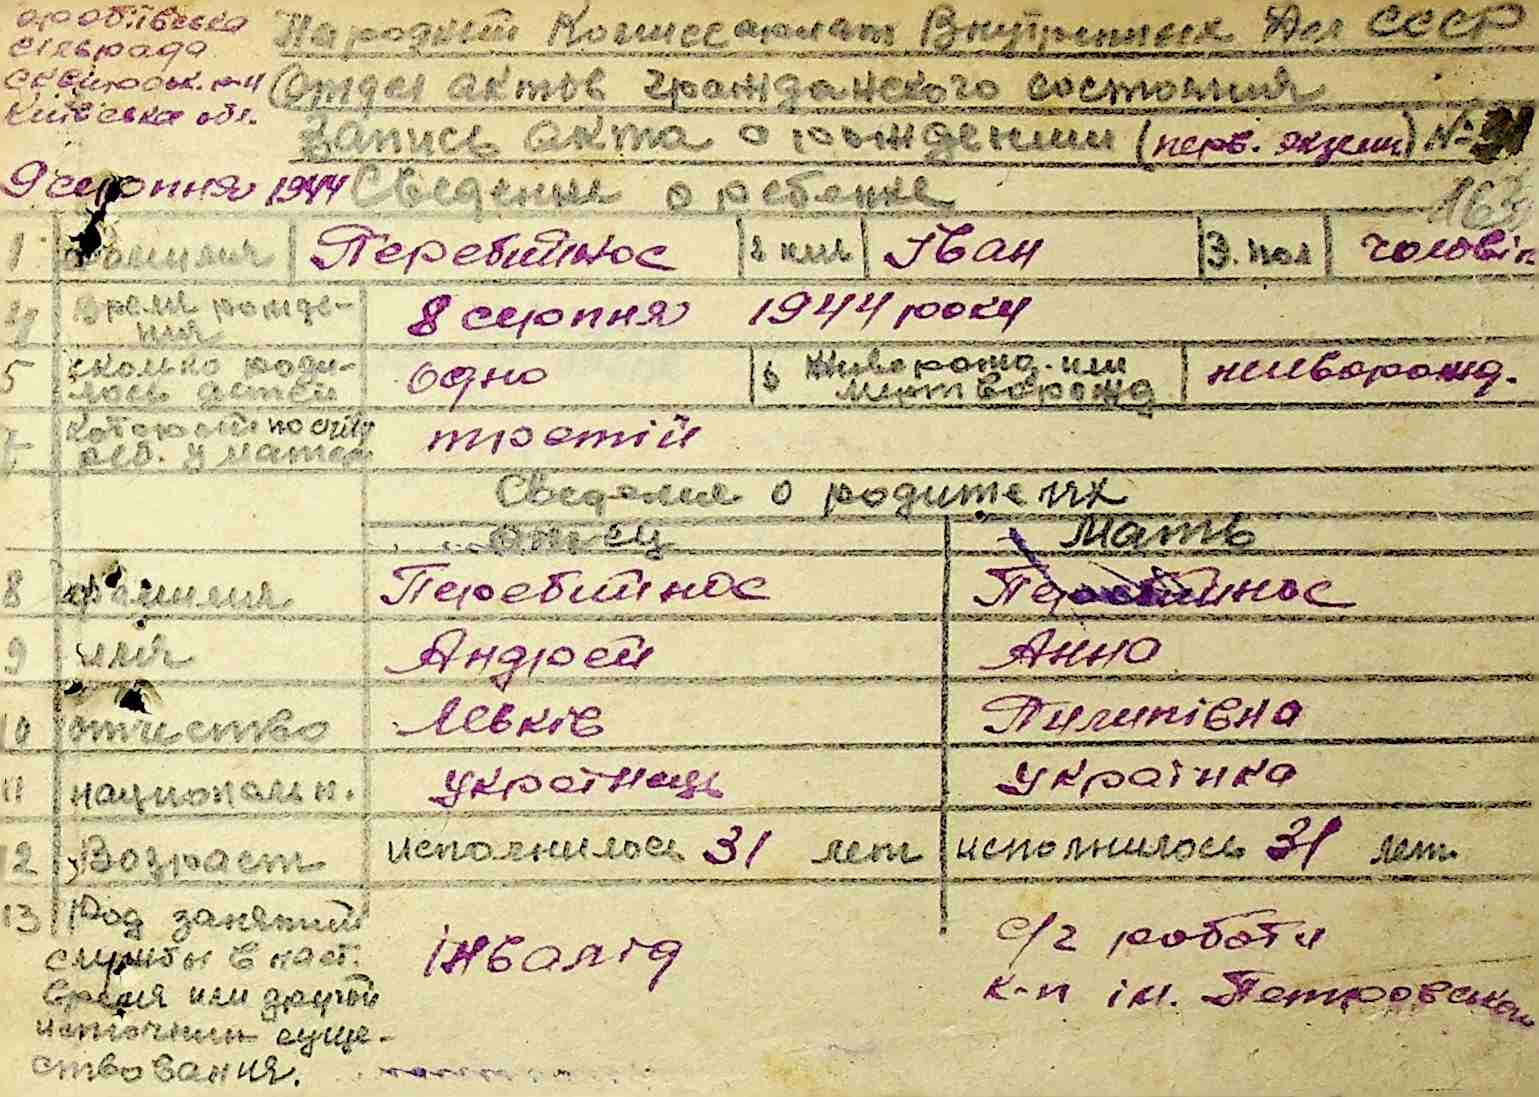 сільрада
Сквирськ. р-н
Київська обл.
Народный Комиссариат Внутренних Дел СССР
Отдел актов гражданского состояния
Запись акта о рождении (перв. экземп) №
9 серпня 1944 Сведение о ребенке
163
1 фамилия Перебийнос 2 имя Іван 3. пол чоловіч
4 Время рожде-
ния 8 серпня 1944 року
5 сколько роди-
лось детей одно 6 Живорожд. или
мертворожд живорожд.
7 Который по счету
реб. у матери третій
Сведения о родителях
отец Мать
8 фамилия Перебийнос Перебийнос
9 имя Андрей Анна
10 отчество Левків Пилипівна
11 национальн. Українець Українка
12 Возраст исполнилось 31 лет исполнилось 31 лет.
13 Род занятий
службы в наст.
время или другой
источник суще-
ствования.
інвалід
с/г роботи
к-п ім. Петровського